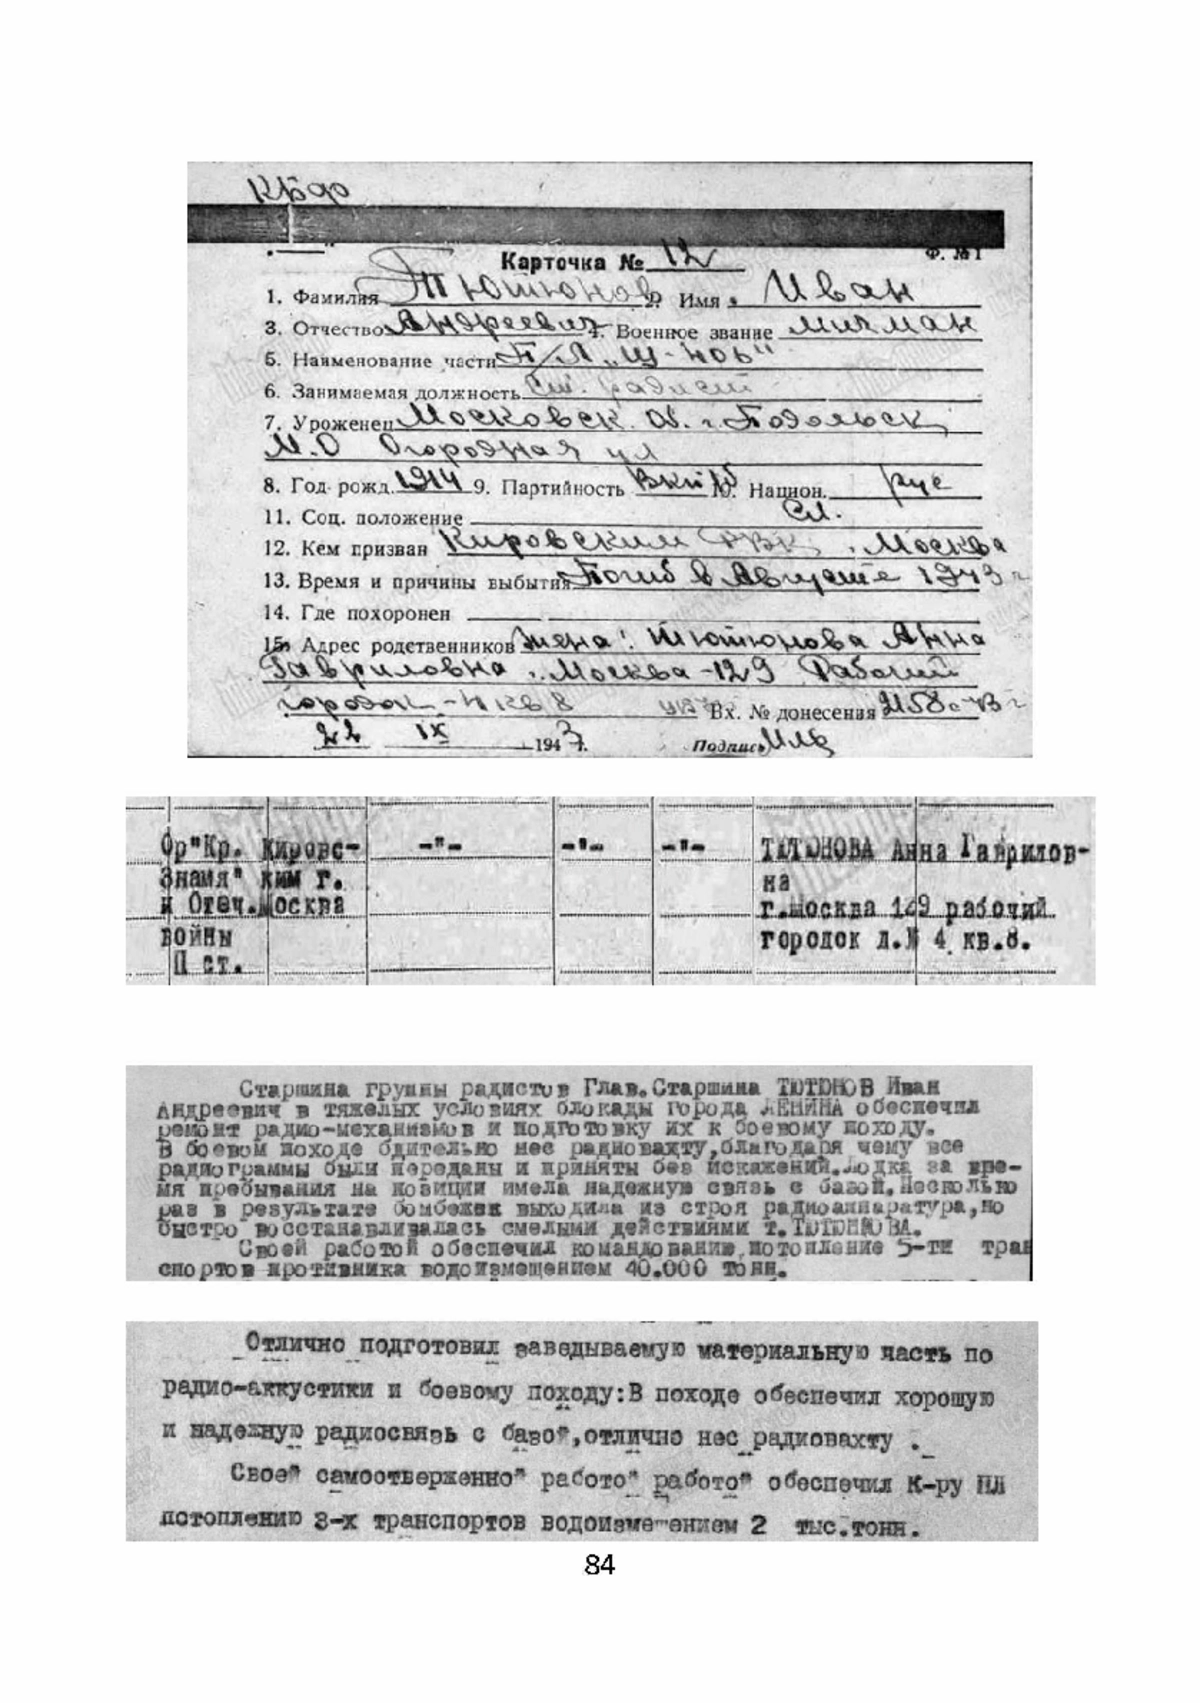 КБФ
Ф. №1
Карточка № 12
1. Фамилия Тютюнов 2. Имя Иван
3. Отчество Андреевич 4. Военное звание мичман
5. Наименование части П/Л „Щ-406"
6. Занимаемая должность Ст. радист
7. Уроженец Московск. об. г. Подольск
М.О Огородная ул
8. Год рожд. 1914 9. Партийность ВКП/б 10. Национ. рус
11. Соц. положение Сл.
12. Кем призван Кировским РВК г. Москва
13. Время и причины выбытия Погиб в Августе 1943 г
14. Где похоронен
15. Адрес родственников жена: Тютюнова Анна
Гавриловна г. Москва-129 Рабочий
городок - 4 кв 8 Вх. № донесения 2158с-43 г
22 IX 1943 г. Подпись
Ор"Кр. Кировс- -"- -"- -"- ТЮТЮНОВА Анна Гаврилов-
Знамя" ким г. на
и Отеч. Москва г.Москва 129 рабочий
войны городок д.№ 4 кв.8.
П ст.
Старшина группы радистов Глав.Старшина ТЮТЮНОВ Иван
Андреевич в тяжелых условиях блокады города ЛЕНИНА обеспечил
ремонт радио-механизмов и подготовку их к боевому походу.
В боевом походе бдительно нес радиовахту,благодаря чему все
радиограммы были переданы и приняты без искажений.Лодка за вре-
мя пребывания на позиции имела надежную связь с базой.Несколько
раз в результате бомбежек выходила из строя радиоаппаратура,но
быстро восстанавливалась смелыми действиями т.ТЮТЮНОВА.
Своей работой обеспечил командованию потопление 5-ти тран
спортов противника водоизмещением 40.000 тонн.
Отлично подготовил заведываемую материальную часть по
радио-аккустики и боевому походу:В походе обеспечил хорошую
и надежную радиосвязь с базой,отлично нес радиовахту .
Своей самоотверженной работой работой обеспечил К-ру ПЛ
потоплению 3-х транспортов водоизмещением 2 тыс.тонн.
84